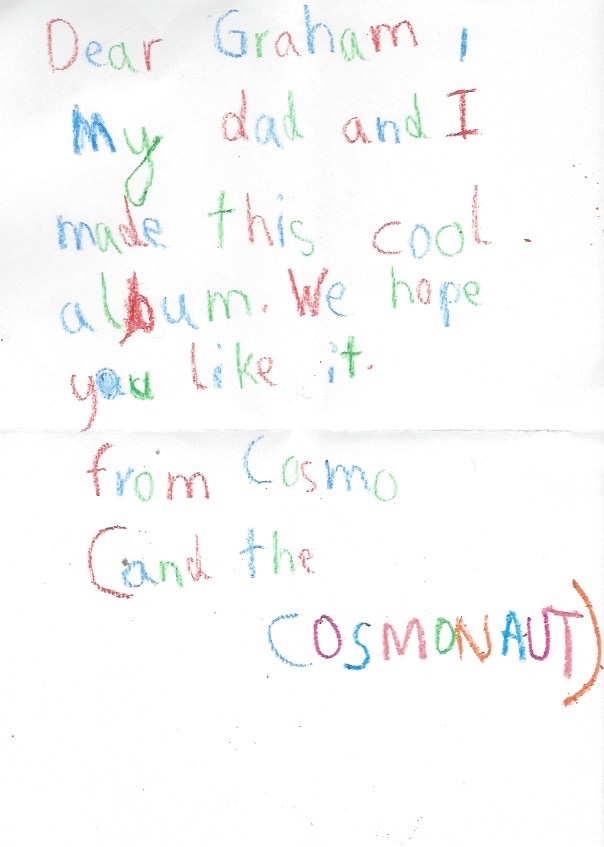 Dear Graham,
My dad and I
made this cool
album. We hope
you like it.
from Cosmo
(and the
COSMONAUT)